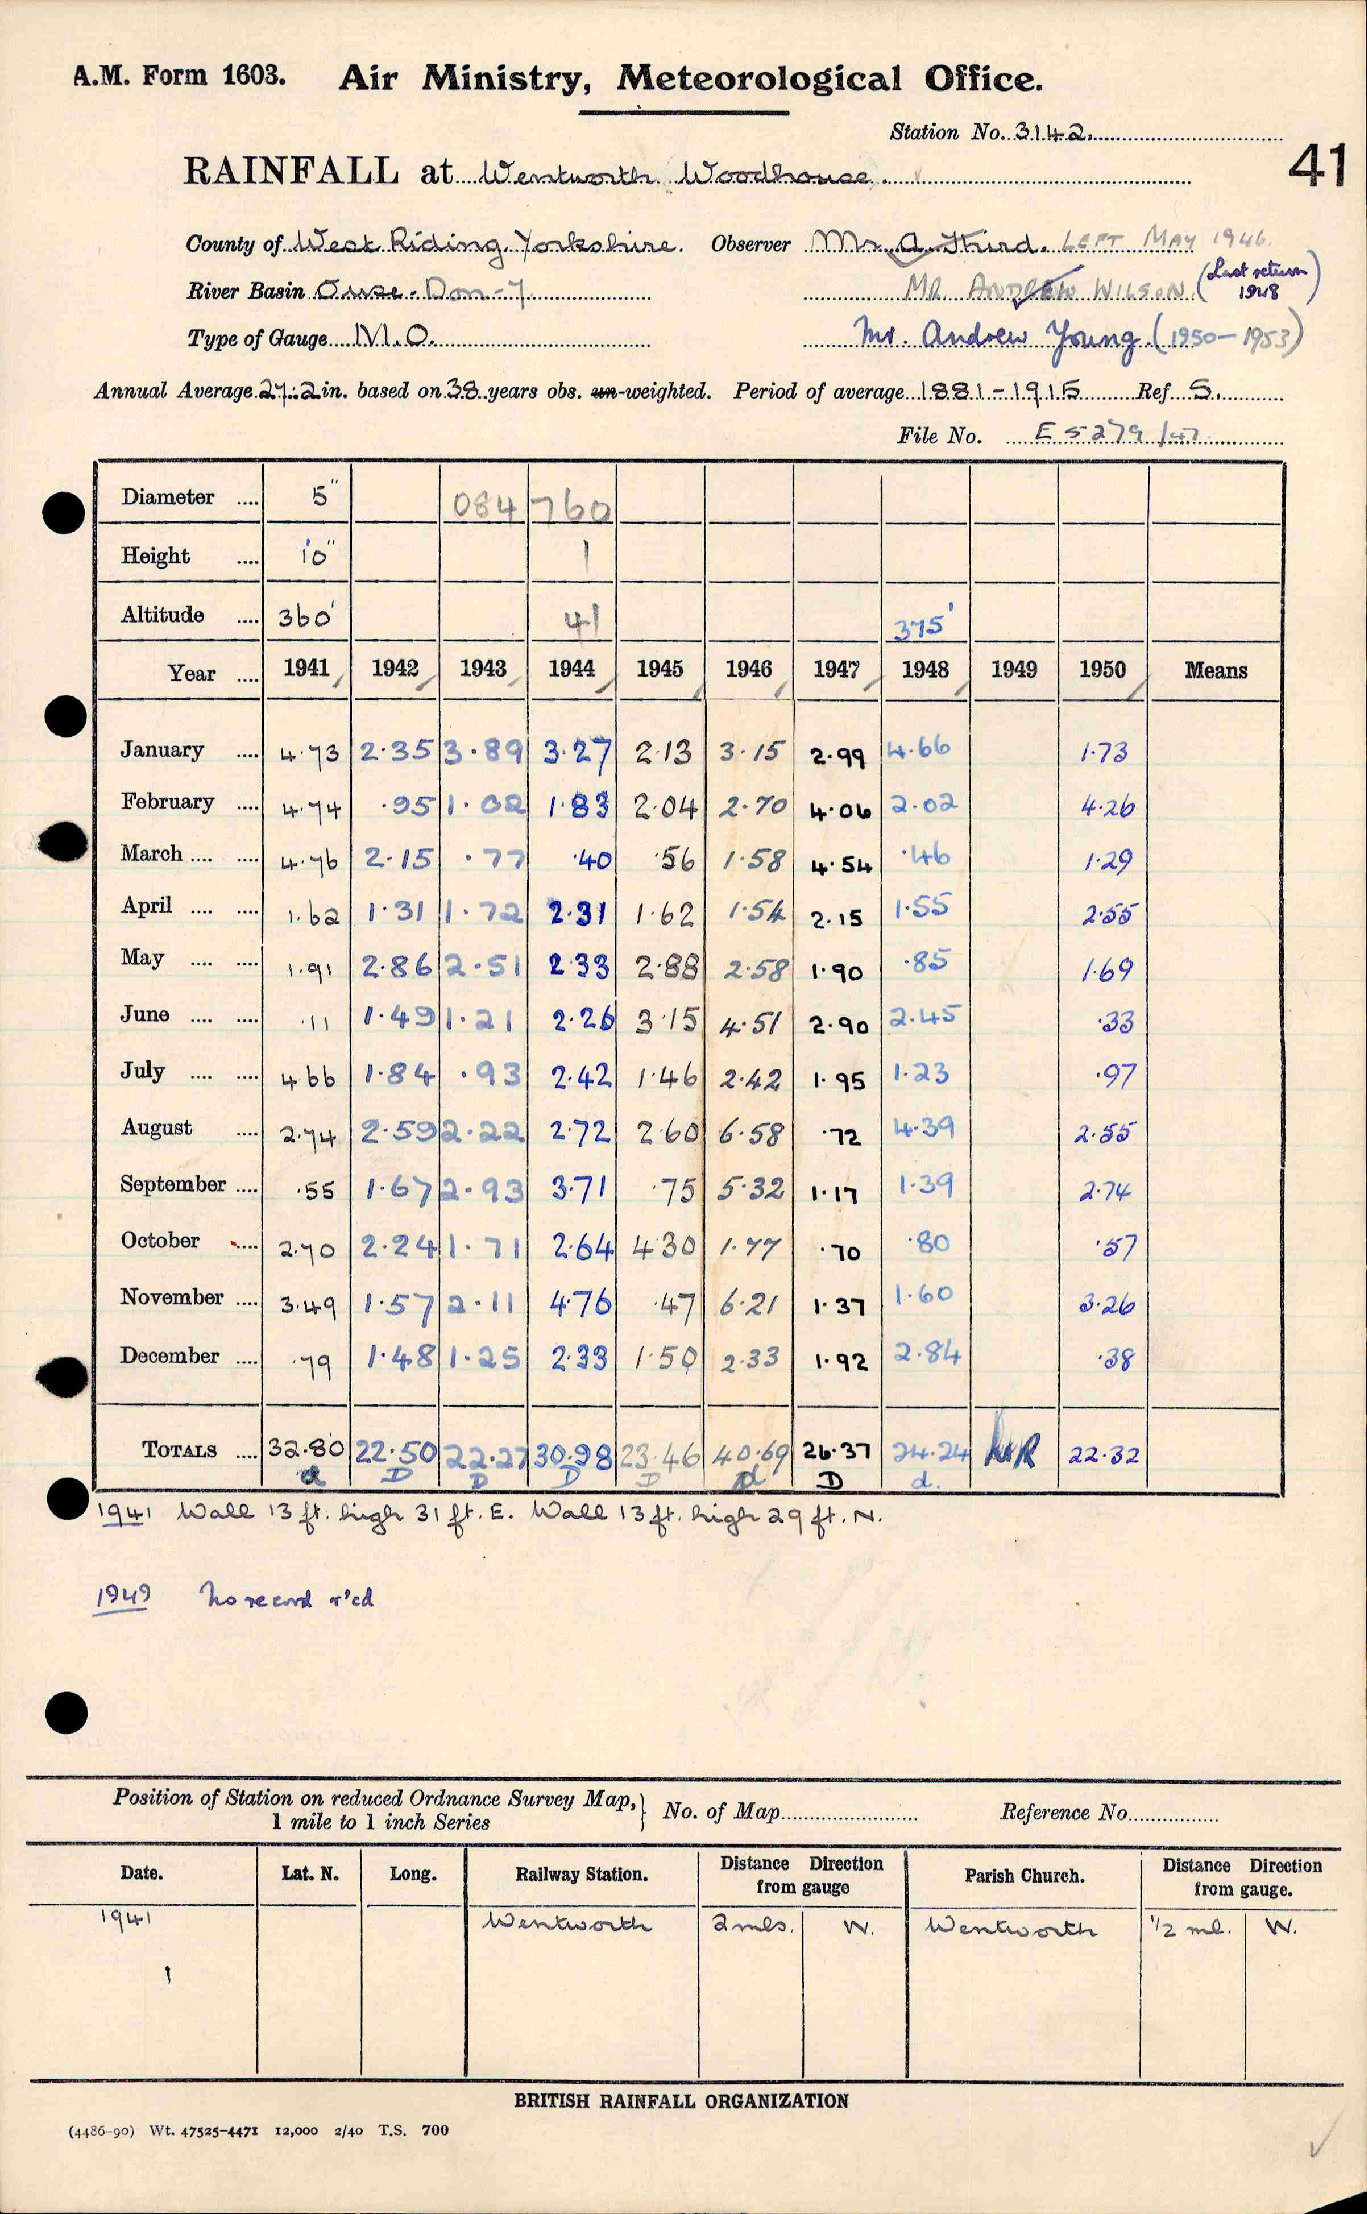 A.M. Form 1603. Air Ministry, Meteorological Office.
Station No. 3142.
41
RAINFALL at Wentworth Woodhouse.
County of West Riding, Yorkshire. Observer Mr. A. Third. LEFT MAY 1946.
River Basin Ouse-Don-7 MR. ANDREW WILSON (Last return 1948)
Type of Gauge M.O. Mr. Andrew Young (1950-1953)
Annual Average 27.2 in. based on 38 years obs. un-weighted. Period of average 1881-1915 Ref S.
File No. E 5279/47
Diameter .... 5" 084 760
Height .... 10" 1
Altitude .... 360' 41 375'
Year .... 1941 1942 1943 1944 1945 1946 1947 1948 1949 1950 Means
January .... 4.73 2.35 3.89 3.27 2.13 3.15 2.99 4.66 1.73
February .... 4.74 .95 1.02 1.83 2.04 2.70 4.06 2.02 4.26
March .... .... 4.76 2.15 .77 .40 .56 1.58 4.54 .46 1.29
April .... .... 1.62 1.31 1.72 2.31 1.62 1.54 2.15 1.55 2.55
May .... .... 1.91 2.86 2.51 2.33 2.88 2.58 1.90 .85 1.69
June .... .... .11 1.49 1.21 2.26 3.15 4.51 2.90 2.45 .33
July .... .... 4 66 1.84 .93 2.42 1.46 2.42 1.95 1.23 .97
August .... 2.74 2.59 2.22 2.72 2.60 6.58 .72 4.39 2.55
September .... .55 1.67 2.93 3.71 .75 5.32 1.17 1.39 2.74
October .... 2.70 2.24 1.71 2.64 4 30 1.77 .70 .80 .57
November .... 3.49 1.57 2.11 4.76 .47 6.21 1.37 1.60 3.26
December .... .79 1.48 1.25 2.33 1.50 2.33 1.92 2.84 .38
TOTALS .... 32.80 22.50 22.27 30.98 23.46 40.69 26.37 24.24 NR 22.32
d D D D D d D d.
1941 Wall 13 ft. high 31 ft. E. Wall 13 ft. high 29 ft. N.
1949 No record r'cd
Position of Station on reduced Ordnance Survey Map,} No. of Map.......... Reference No..........
1 mile to 1 inch Series
Date. Lat. N. Long. Railway Station. Distance Direction from gauge Parish Church. Distance Direction from gauge.
1941 Wentworth 2 mls. W. Wentworth 1/2 ml. W.
BRITISH RAINFALL ORGANIZATION
(4486-90) Wt. 47525-4471 12,000 2/40 T.S. 700